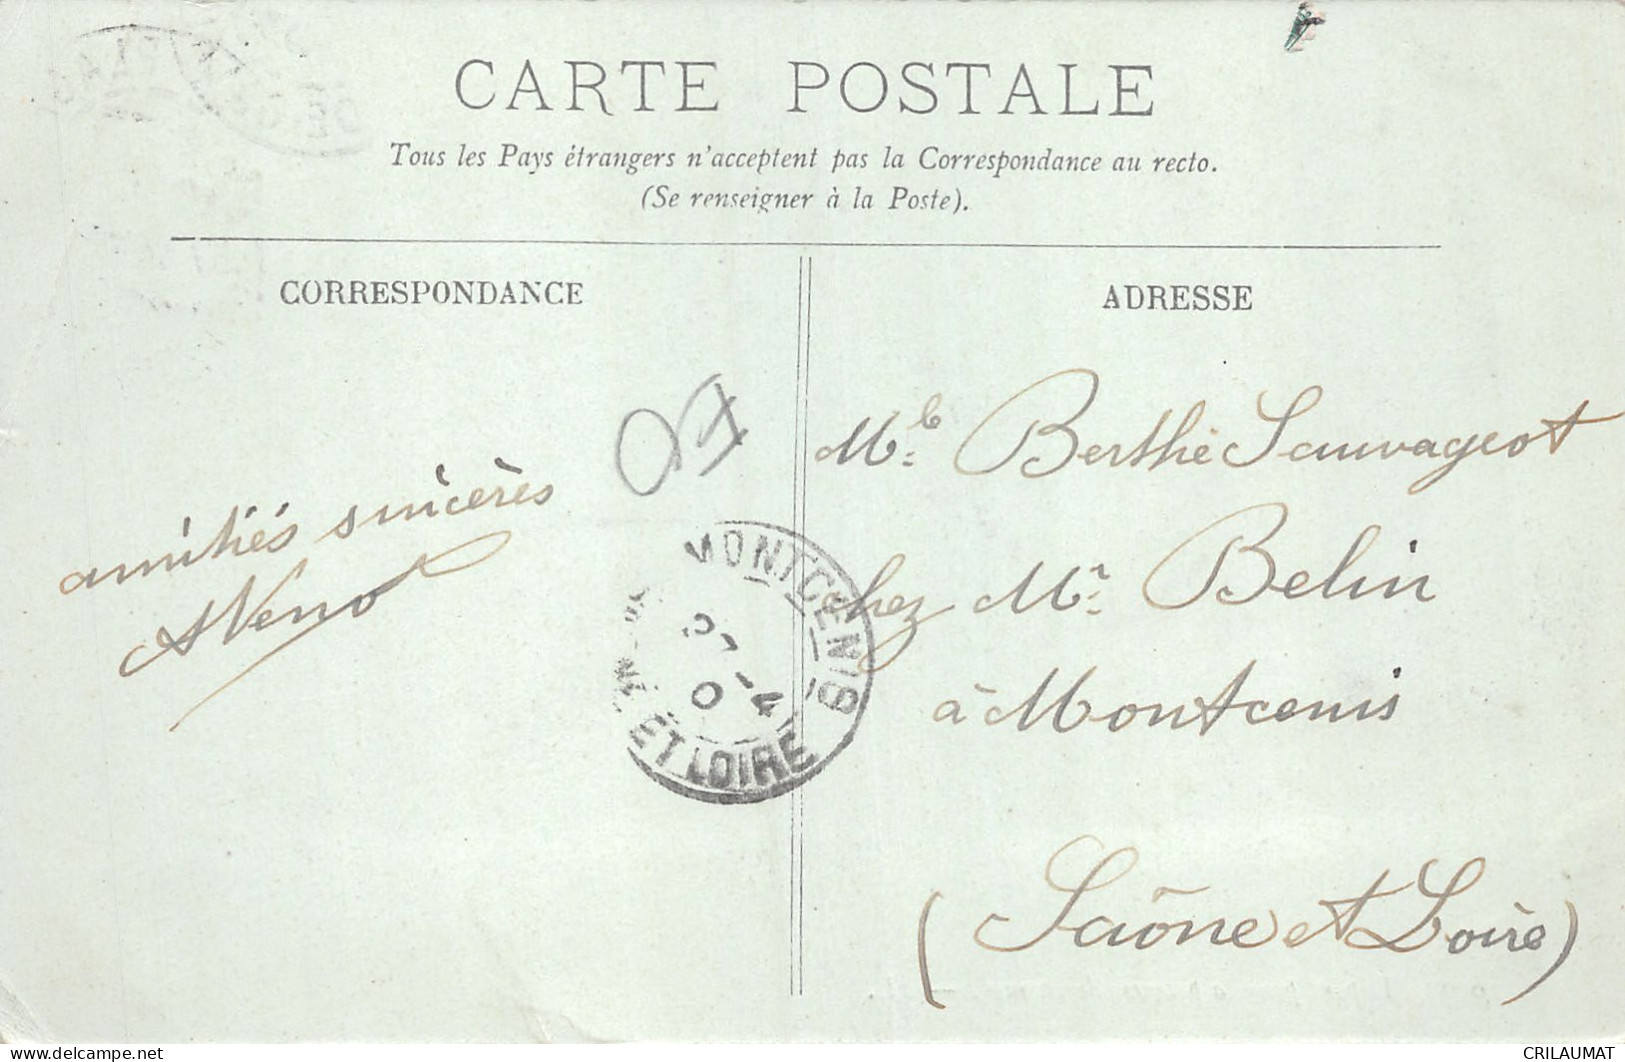 CARTE POSTALE
Tous les Pays étrangers n'acceptent pas la Correspondance au recto.
(Se renseigner à la Poste).
CORRESPONDANCE
ADRESSE
amitiés sincères
Mle Berthe Sauvageot
chez Mr Belin
à Montcenis
(Saône et Loire)
MONTCENIS
ET LOIRE
CRILAUMAT